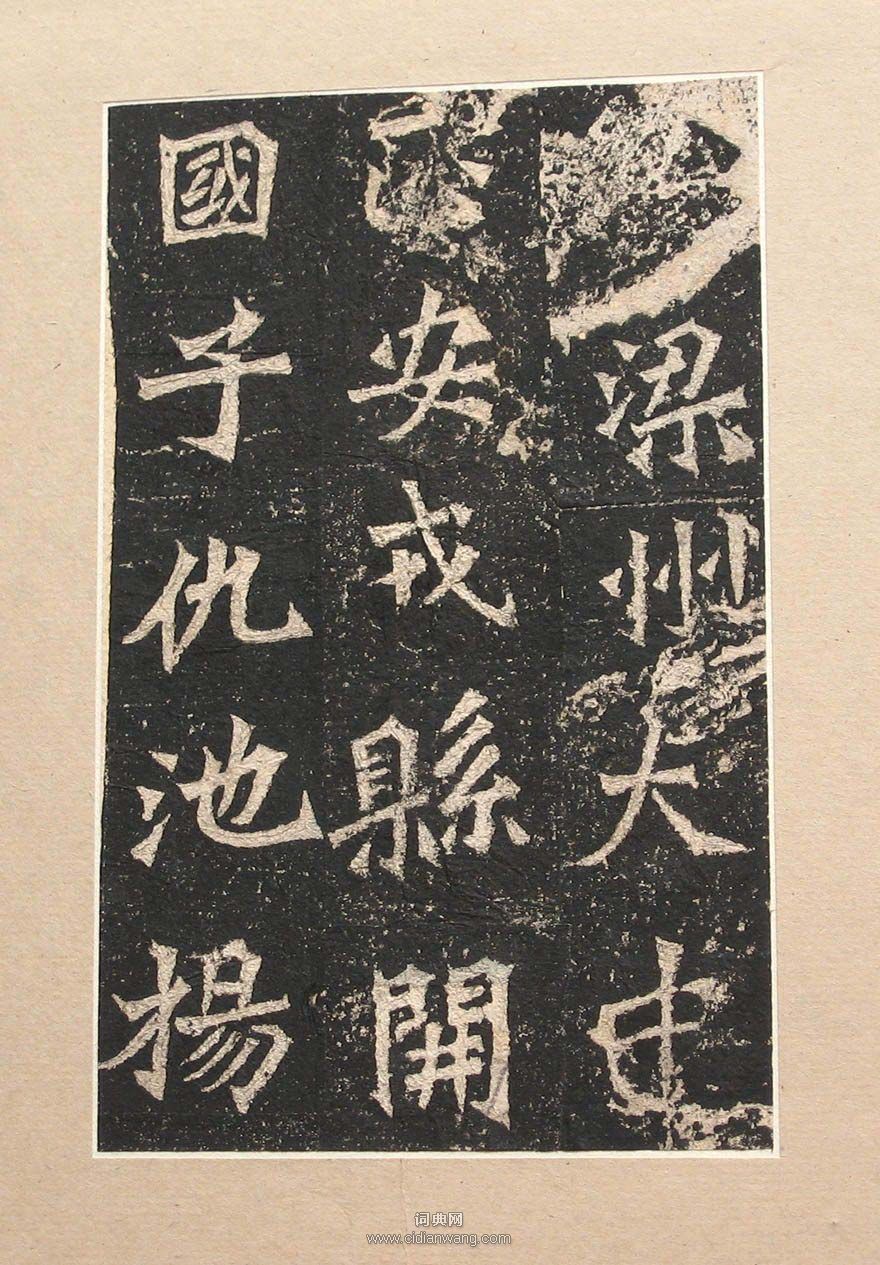 梁州大中
安戎縣開
國子仇池揚
词典网
www.cidianwang.com